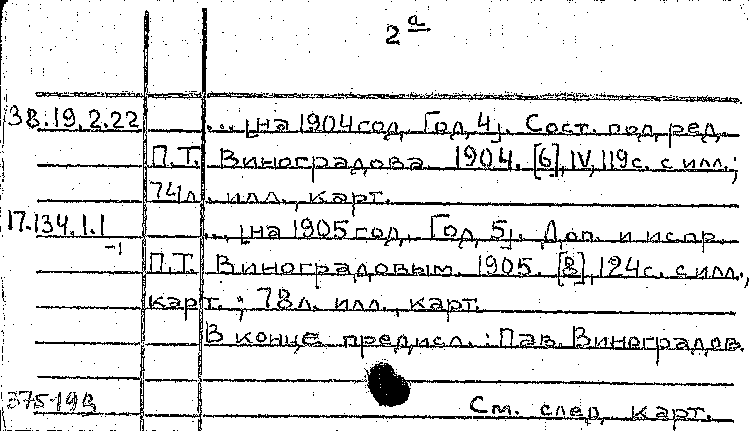 2 а
38.19.2.22 ... [на 1904 год, Год 4]. Сост. под ред.
П.Т. Виноградова. 1904. [6], IV, 119 с. с илл.;
74 л. илл., карт.
17.134.1.1 ... [на 1905 год, Год 5]. Доп. и испр.
-1
П.Т. Виноградовым. 1905. [8], 124 с. с илл.,
карт.; 78 л. илл., карт.
В конце предисл.: Пав. Виноградов.
См. след. карт.